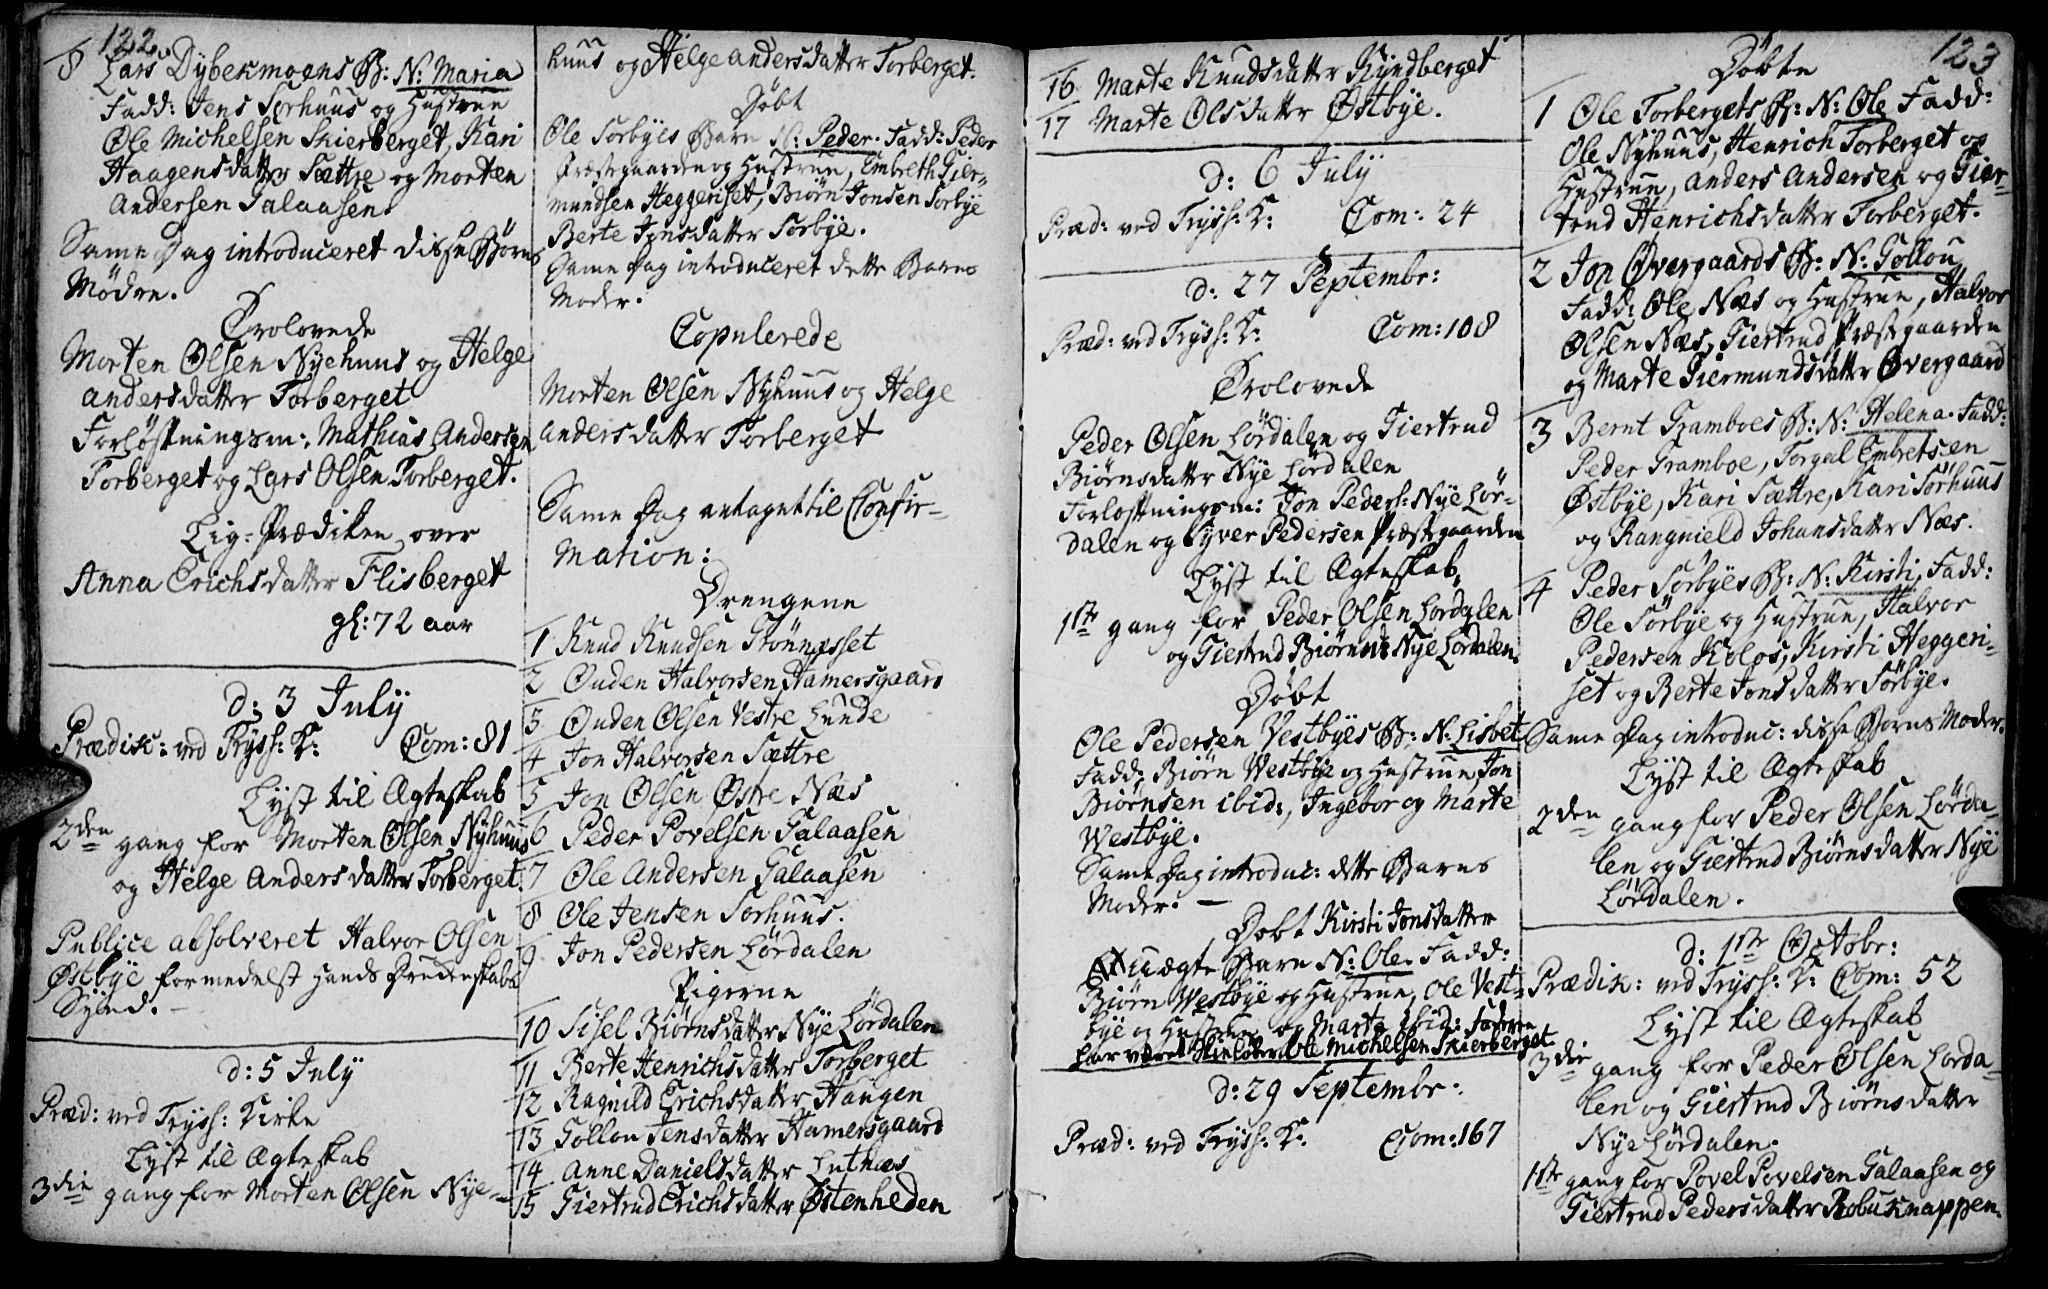 122.
8 Lars Dybekmoens B: N: Maria
Fadd: Jens Sørhuus og Hustrue
Ole Michelsen Skierberget, Kari
Haagensdatter Sættre og Morten
Andersen Galaasen.
Same Dag introduceret disse Børns
Mødre.
Trolovede
Morten Olsen Nyehuus og Helge
Andersdatter Torberget
Forløftningsm: Mathias Andersen
Torberget og Lars Olsen Torberget.
Lig-Prædiken over
Anna Erichsdatter Flisberget
gl: 72 aar
d: 3 July
Prædik: ved Tryss: K: Com: 81
Lyst til Ægteskab
2den gang for Morten Olsen Nyhuus
og Helge Andersdatter Torberget.
Publice absolveret Halvor Olsen
Østbye formedelst Hands Drukenskabs
Synd. -
d: 5 July
Præd: ved Tryss: Kirke
Lyst til Ægteskab
3die gang for Morten Olsen Nye-
huus og Helge Andersdatter Torberget.
Døbt
Ole Sørbyes Barn N: Peder. Fadd: Peder
Præstgaarden og Hustrue, Embreth Gier-
mundsen Heggeriset, Biørn Jonsen Sørbye
Berte Jonsdatter Sørbye.
Same Dag introduceret dette Barns
Moder.
Copulerede
Morten Olsen Nyhuus og Helge
Andersdatter Torberget
Same Dag antaget til Confir-
mation:
Drengene
1 Knud Knudsen Grønnesset
2 Ouden Halvorsen Hamersgaard
3 Ouden Olsen Vestre Lunde
4 Jon Halvorsen Sættre
5 Jon Olsen Østre Næs
6 Peder Povelsen Galaasen
7 Ole Andersen Galaasen
8 Ole Jensen Sørhuus.
9 Jon Pedersen Lördalen
Pigerne
10 Sisel Biørnsdatter Nye Lördalen
11 Berte Henrichsdatter Torberget
12 Ragnild Erichsdatter Haugen
13 Gollou Jensdatter Hamersgaard
14 Anne Danielsdatter Lutnæs
15 Giertrud Erichsdatter Østenheden
16 Marte Knudsdatter Kyndberget
17 Marte Olsdatter Østbye.
d: 6 July
Præd: ved Tryss: K: Com: 24
d: 27 Septembr:
Præd: ved Tryss: K: Com: 108
Trolovede
Peder Olsen Lördalen og Giertrud
Biørnsdatter Nye Lördalen
Forløftningsm: Jon Peders: Nye Lör-
dalen og Syver Pedersen Præstgaarden
Lyst til Ægteskab
1ste gang for Peder Olsen Lördalen
og Giertrud Biørnsd: Nye Lördalen.
Døbt
Ole Pedersen Vestbyes B: N: Lisbet
Fadd: Biørn Westbye og Hustrue, Jon
Biørnsen ibid:, Ingebor og Marte
Westbye.
Same Dag introduc: dette Barns
Moder. -
Døbt Kirsti Jonsdatter
uægte Barn N: Ole. Fadd:
Biørn Westbye og Hustrue, Ole Vest-
bye og Hustrue og Marte ibid: Faderen
har været Skieløber Ole Michelsen Skierberget
d: 29 Septembr:
Præd: ved Tryss: K: Com: 167
123
Døbte
1 Ole Torbergets B: N: Ole Fadd:
Ole Nyhuus, Henrich Torberget og
Hustrue, Anders Andersen og Gier-
trud Henrichsdatter Torberget.
2 Jon Øvergaards B: N: Gollou
Fadd: Ole Næs og Hustrue, Halvor
Olsen Næs, Giertrud Præstgaarden
og Marte Giermundsdatter Øvergaard
3 Bernt Gramboes B: N: Helena. Fadd:
Peder Gramboe, Torgal Embretsen
Østbye, Kari Sættre, Kari Sørhuus
og Rangnield Johansdatter Næs.
4 Peder Sørbyes B: N: Kirsti, Fadd:
Ole Sörbye og Hustrue, Halvor
Pedersen Kolos, Kirsti Heggeri-
set og Berte Jonsdatter Sörbye.
Same Dag introduc: disse Børns Moder.
Lyst til Ægteskab
2den gang for Peder Olsen Lörda-
len og Giertrud Biørnsdatter Nye
Lördalen.
d: 1ste Octobr:
Prædik: ved Tryss: K: Com: 52
Lyst til Ægteskab
3die gang for Peder Olsen Lörda-
len og Giertrud Biørnsdatter
Nye Lördalen.
1ste gang for Povel Povelsen Galaasen og
Giertrud Pedersdatter Robuknappen.